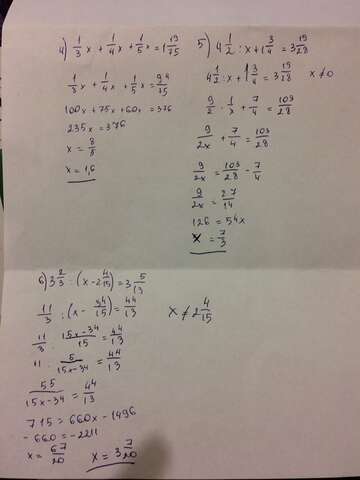 4) 1/3 x + 1/4 x + 1/5 x = 1 19/75
1/3 x + 1/4 x + 1/5 x = 94/75
100x + 75x + 60x = 376
235x = 376
x = 8/5
x = 1,6
5) 4 1/2 : x + 1 3/4 = 3 19/28
4 1/2 : x + 1 3/4 = 3 19/28 x ≠ 0
9/2 · 1/x + 7/4 = 103/28
9/2x + 7/4 = 103/28
9/2x = 103/28 - 7/4
9/2x = 27/14
126 = 54x
x = 7/3
6) 3 2/3 : (x - 2 4/15) = 3 5/13
11/3 : (x - 34/15) = 44/13 x ≠ 2 4/15
11/3 : 15x-34/15 = 44/13
11 · 5/15x-34 = 44/13
55/15x-34 = 44/13
715 = 660x - 1496
-660 = -2211
x = 67/20 x = 3 7/20